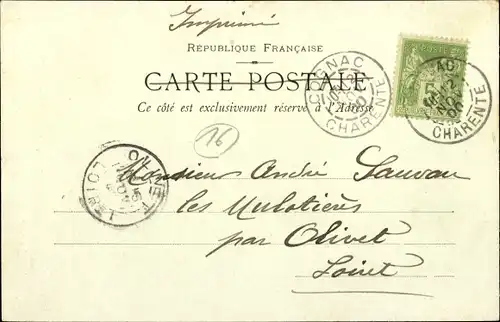 Imprimé
RÉPUBLIQUE FRANÇAISE
CARTE POSTALE
Ce côté est exclusivement réservé à l'Adresse
COGNAC
CHARENTE
POSTE
5
AC
CHARENTE
16
OLIVET
LOIRET
Monsieur André Sauvau
les Mulotières
par Olivet
Loiret